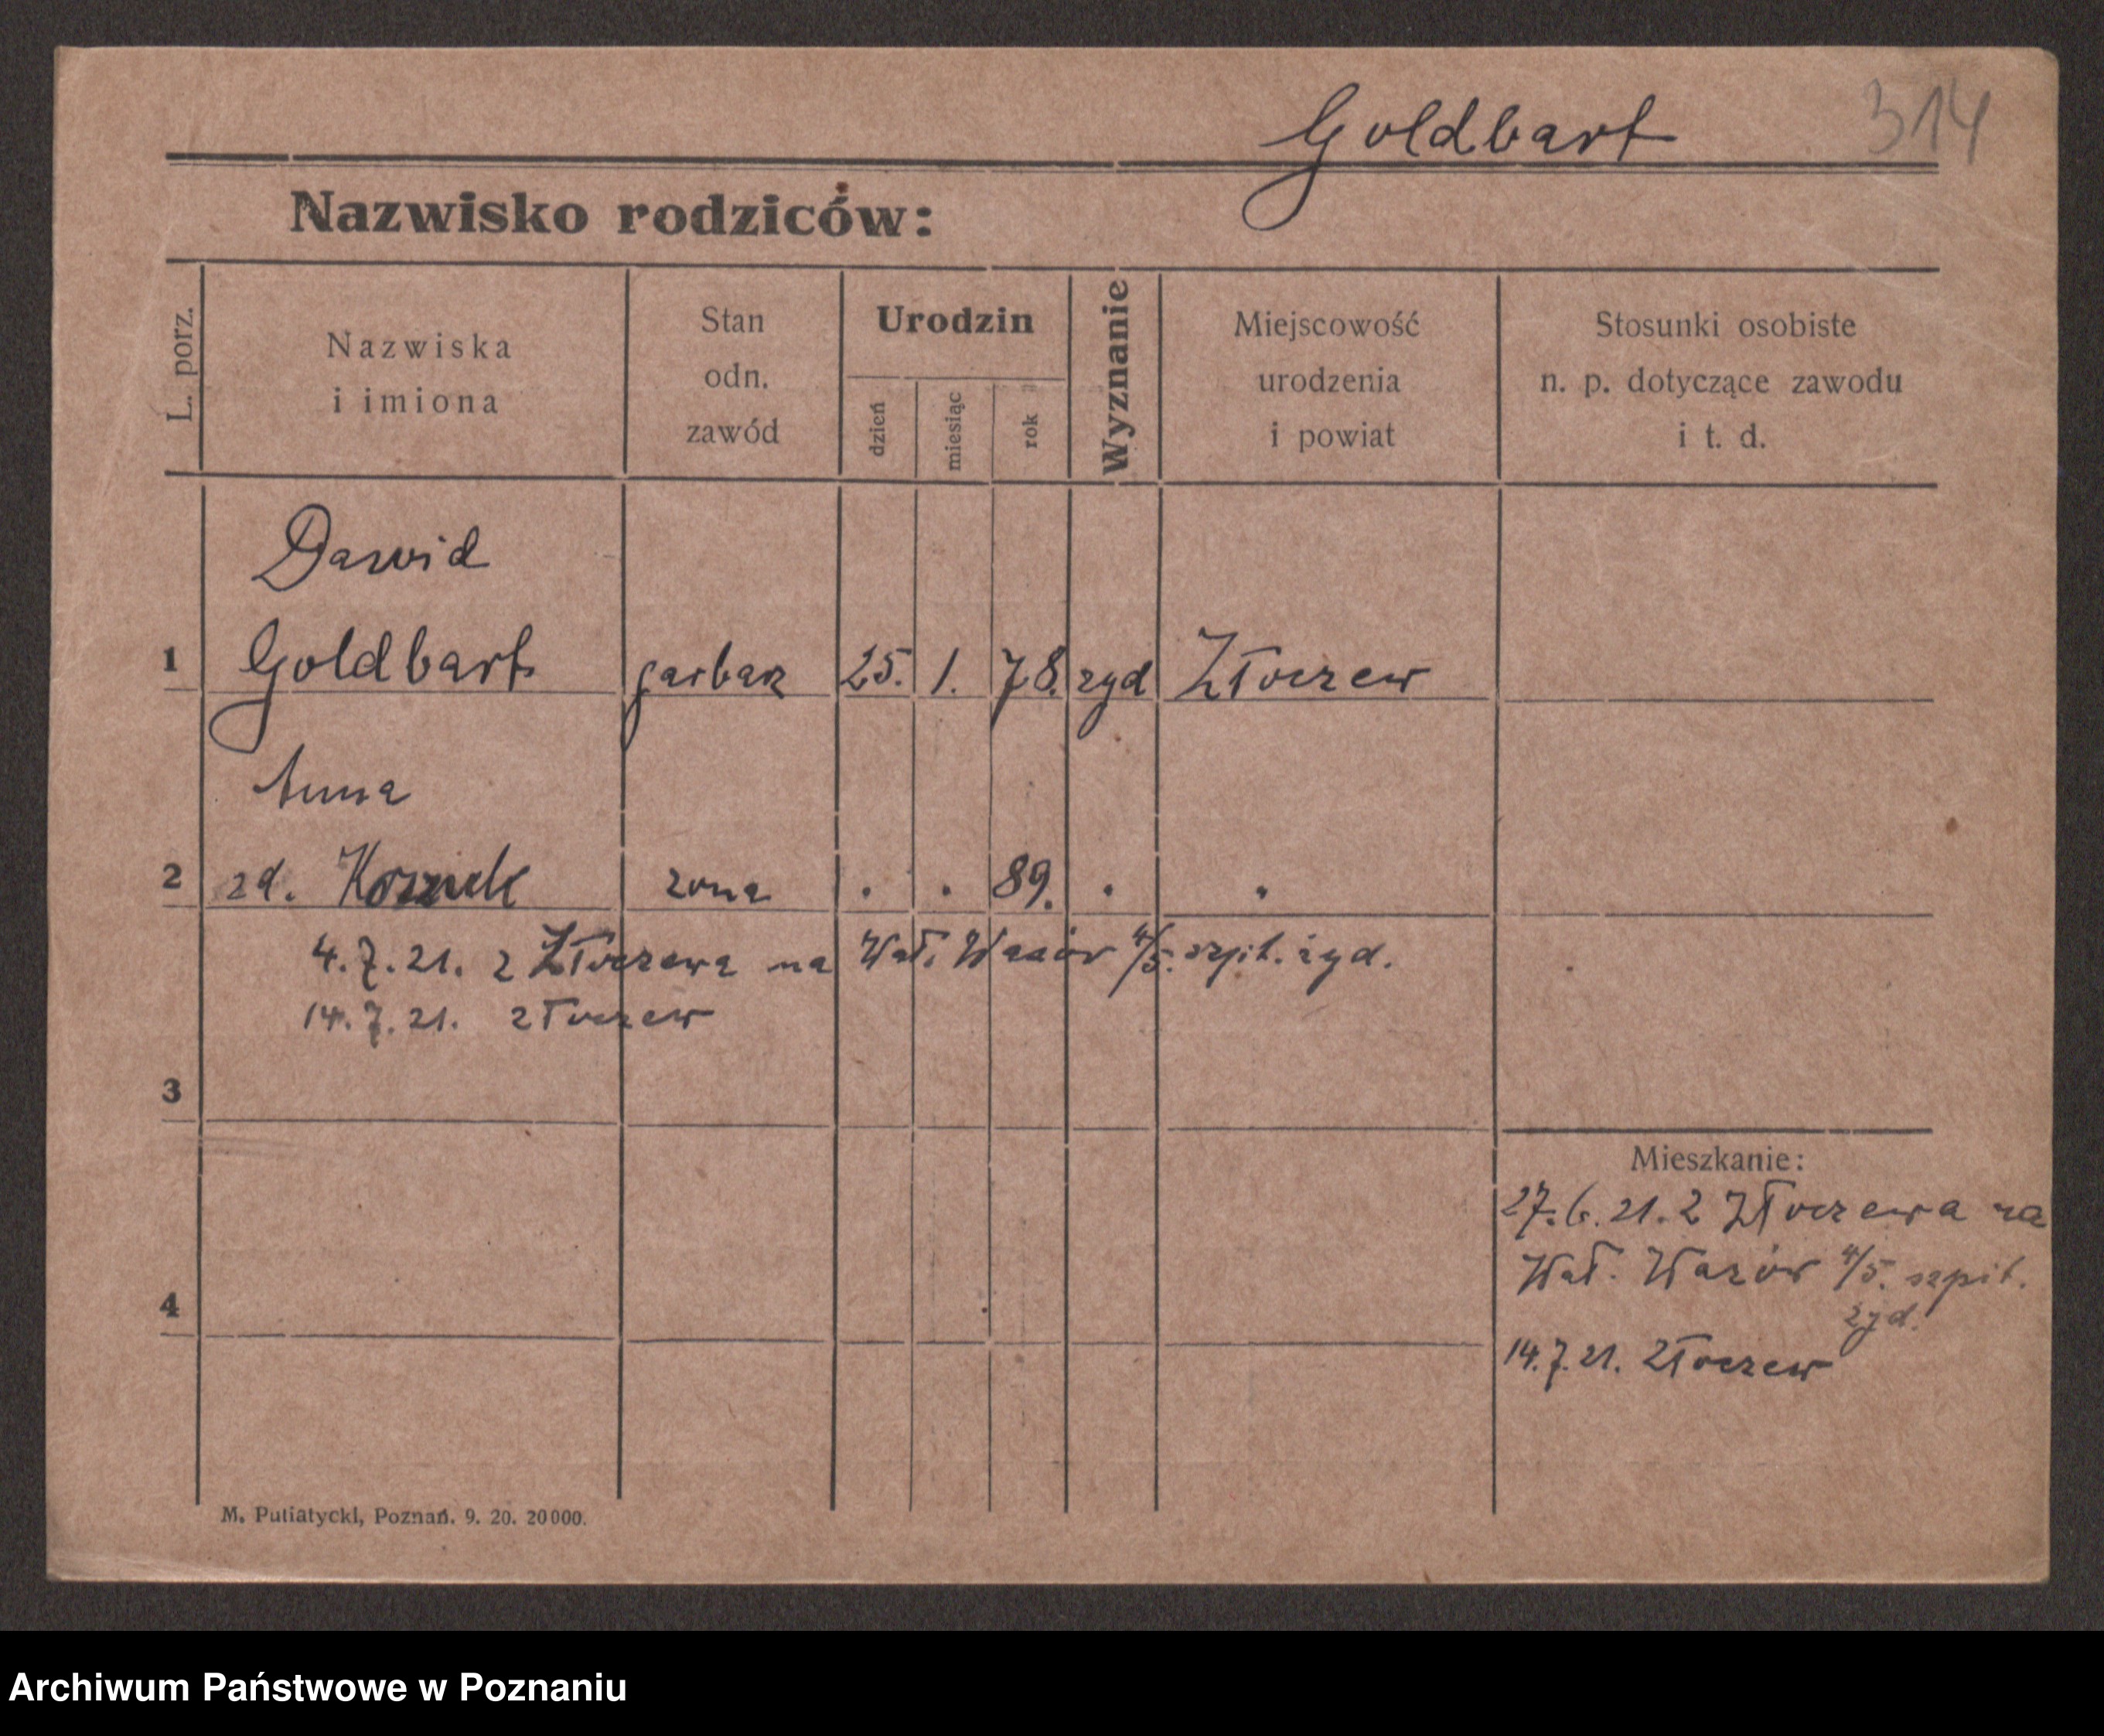 Goldbart 314
Nazwisko rodziców:
L. porz.
Nazwiska
i imiona
Stan
odn.
zawód
Urodzin
dzień
miesiąc
rok
Wyznanie
Miejscowość
urodzenia
i powiat
Stosunki osobiste
n. p. dotyczące zawodu
i t. d.
Dawid
1 Goldbart garbarz 25. 1. 78. zyd Złoczew
Anna
2 zd. zona . . 89. . .
4.7.21. z Złoczewa na Wał. Wazów 4/5. szpit. żyd.
14.7.21. Złoczew
3
Mieszkanie:
27.6.21. z Złoczewa na
Wał. Wazów 4/5. szpit.
zyd.
4
14.7.21. Złoczew
M. Putiatycki, Poznań. 9. 20. 20000.
Archiwum Państwowe w Poznaniu